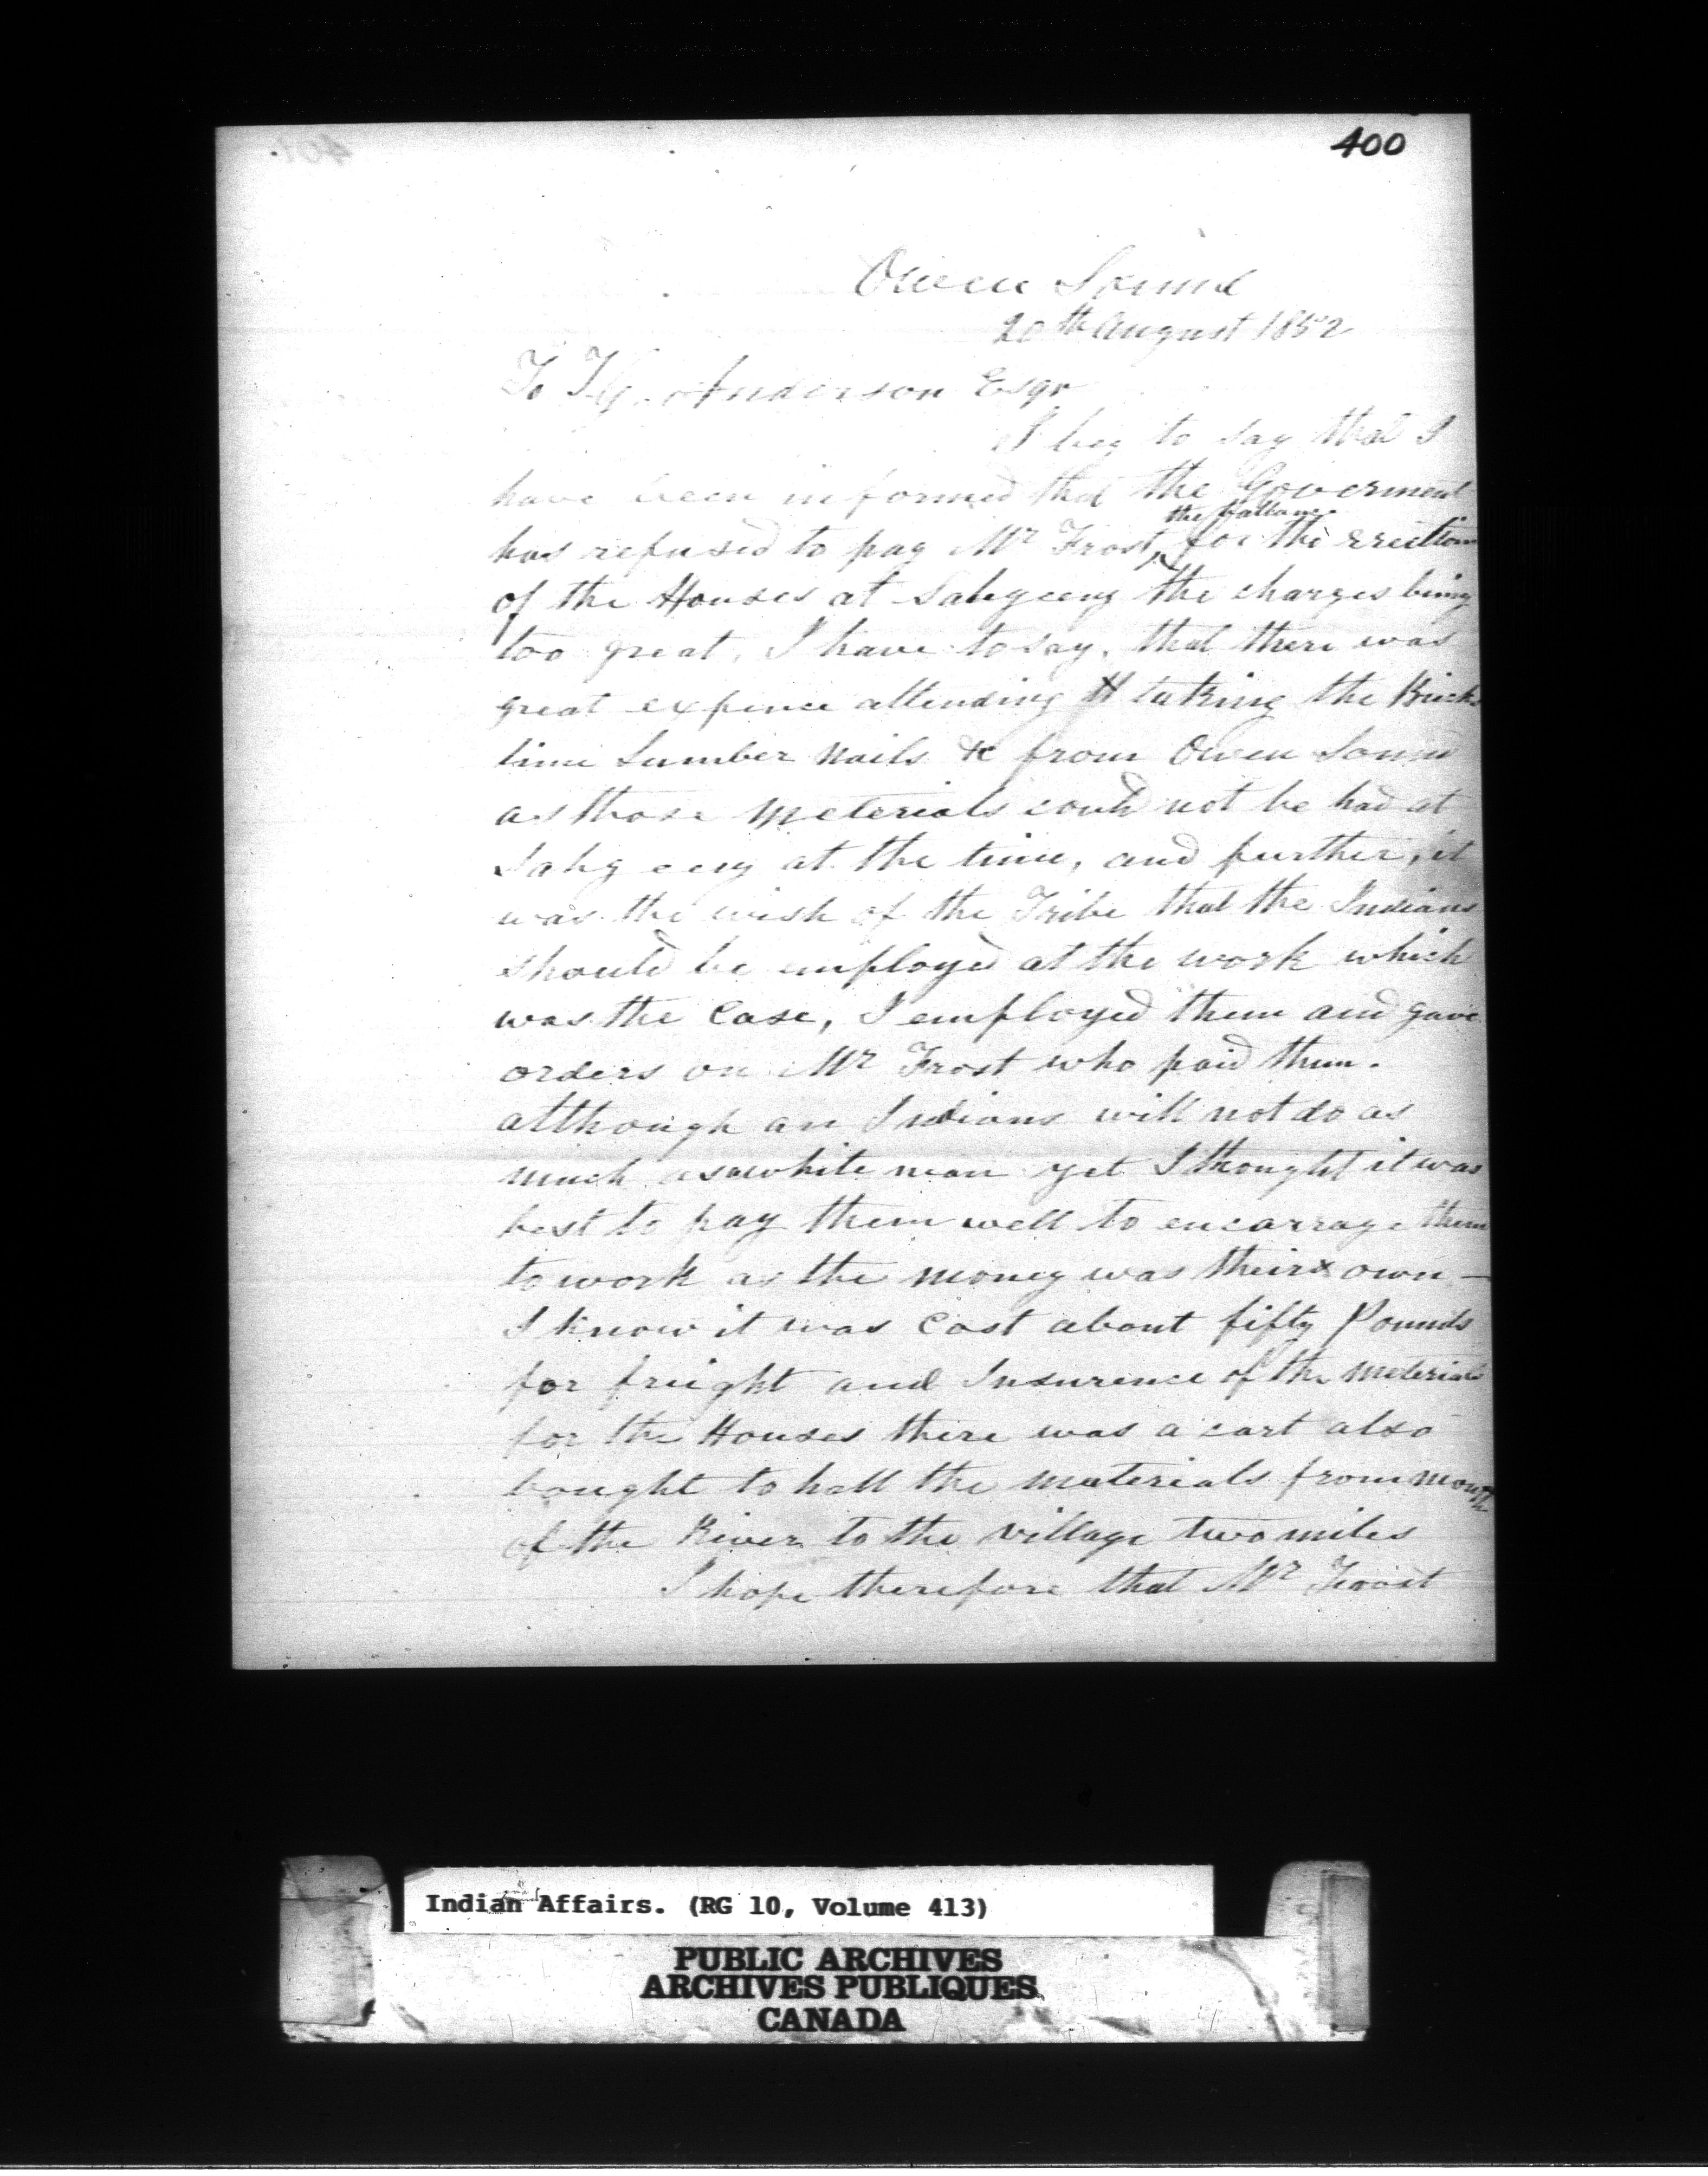 400
Owen Sound
20th August 1852
To T.G. Anderson Esqr
I beg to say that I
have been informed that the Goverment
the ballance
has refused to pay Mr Frost, for the erection
of the Houses at Sahgeeng the charges being
too great, I have to say, that there was
great expence attending taking the Bricks
lime Lumber Nails &c from Owen Sound
as those meterials could not be had at
Sahgeeng at the time, and further, it
was the wish of the Tribe that the Indians
should be employed at the work which
was the Case, I employed them and gave
orders on Mr Frost who paid them.
although an Indians will not do as
much as a white man yet I thought it was
best to pay them well to encarrage them
to work as the money was their own —
I know it was Cost about fifty Pounds
for freight and Insurence of the meterials
for the Houses there was a cart also
bought to hall the materials from mouth
of the River to the village two miles
I hope therefore that Mr Frost
Indian Affairs. (RG 10, Volume 413)
PUBLIC ARCHIVES
ARCHIVES PUBLIQUES
CANADA